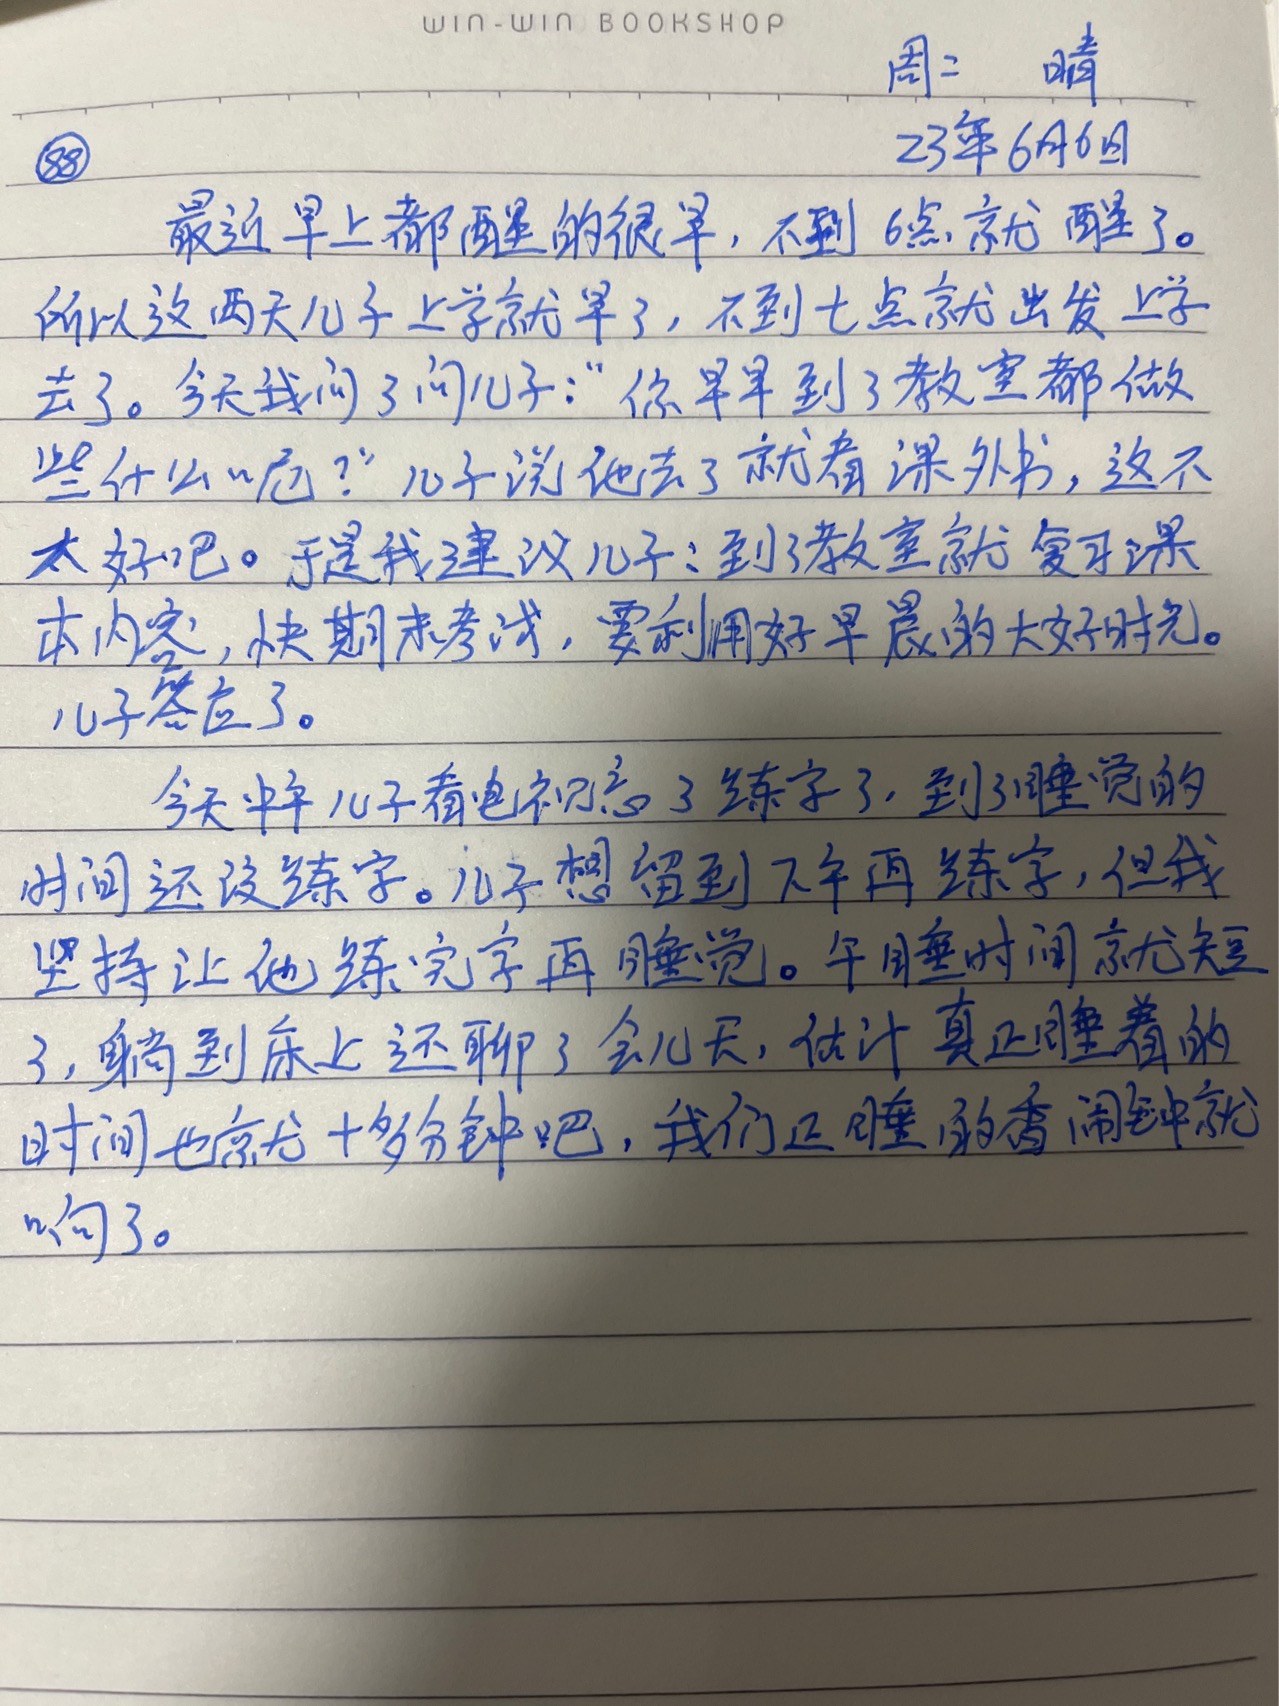 WIN-WIN BOOKSHOP
周二 晴
88 23年6月6日
最近早上都醒的很早，不到6点就醒了。
所以这两天儿子上学就早了，不到七点就出发上学
去了。今天我问了问儿子：“你早早到了教室都做
些什么呢？”儿子说他去了就看课外书，这不
太好吧。于是我建议儿子：到了教室就复习课
本内容，快期末考试，要利用好早晨的大好时光。
儿子答应了。
今天中午儿子看电视忘了练字了，到了睡觉的
时间还没练字。儿子想留到下午再练字，但我
坚持让他练完字再睡觉。午睡时间就短
了，躺到床上还聊了会儿天，估计真正睡着的
时间也就十多分钟吧，我们正睡的香闹钟就
响了。